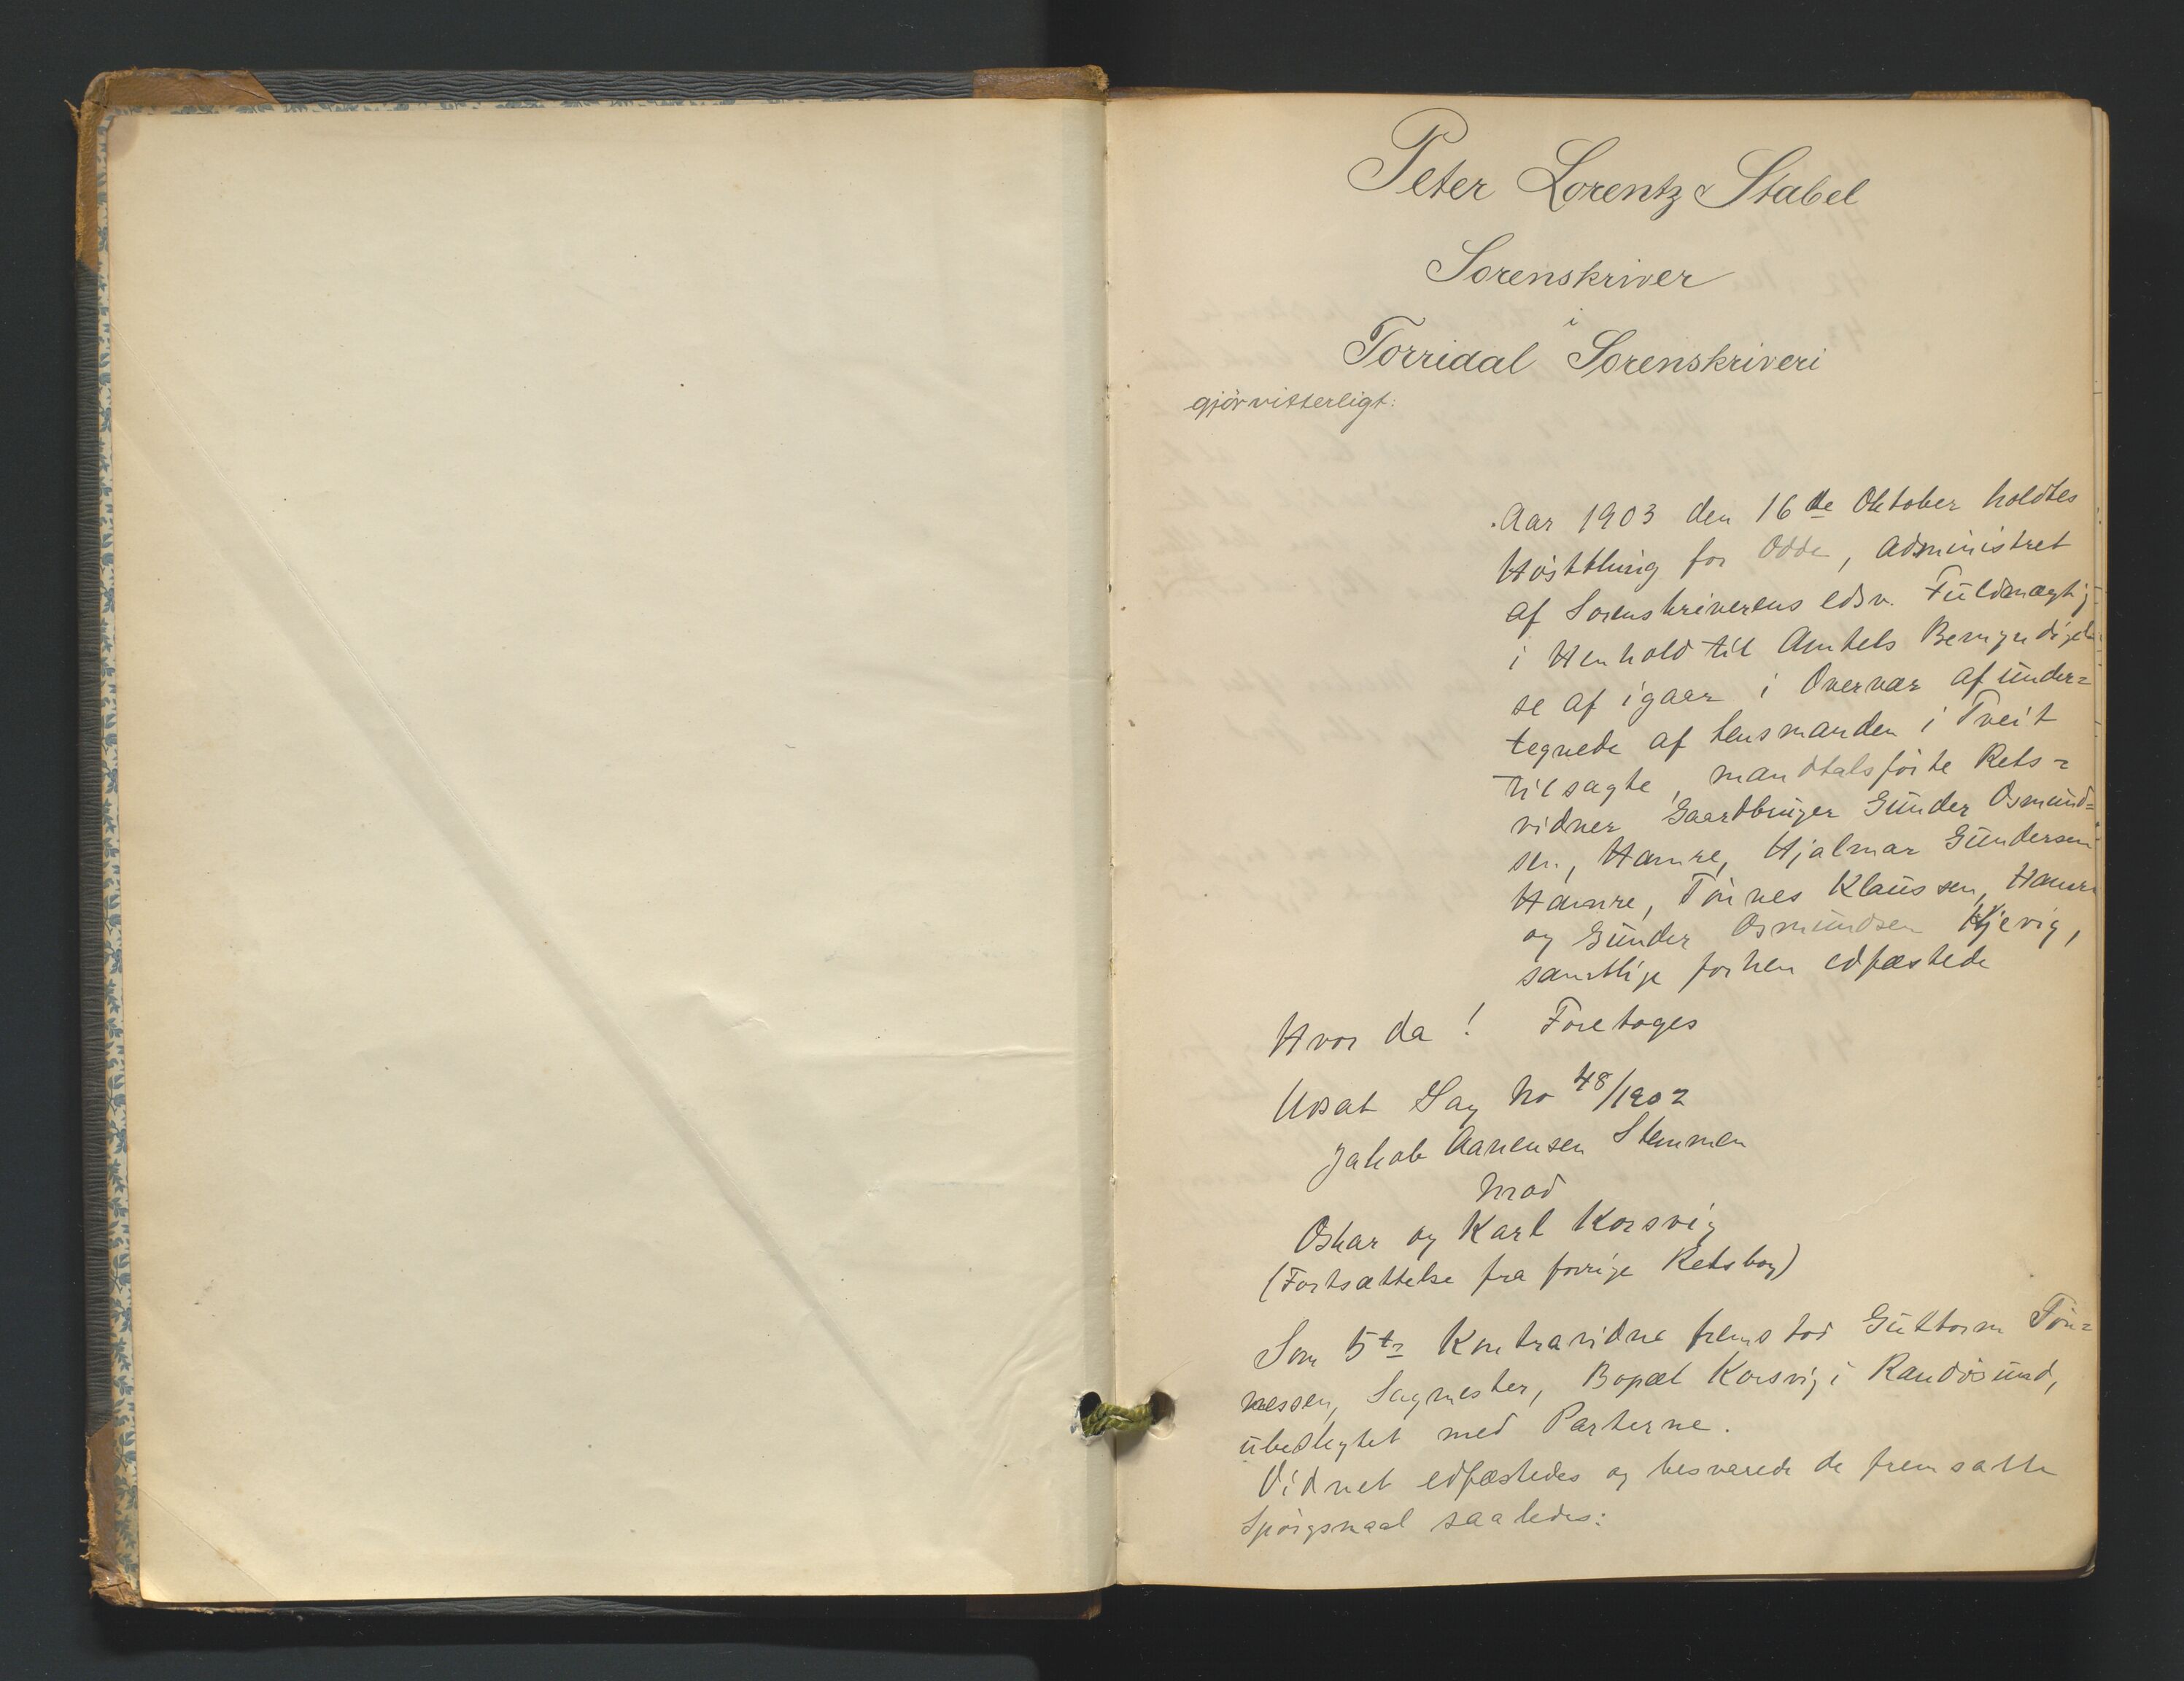 Peter Lorentz Stabel
Sorenskriver
i
Torridal Sorenskriveri
gjör vitterligt:
Aar 1903 den 16de Oktober holdtes
Høstthing for Odde, administret
af Sorenskriverens edsv. Fuldmægtig
i Henhold til Amtets Bemyndigel
se af igaar i Overvær af under=
tegnede af Lensmanden i Tveit
tilsagte, mandtalsførte Rets=
vidner Gaardbruger Gunder Osmund=
sen, Hamre, Hjalmar Gundersen
Hamre, Tønnes Klaussen, Hamre
og Gunder Osmundsen Kjevig,
samtlige forhen edfæstede
Hvor da! Foretoges
Udsat Sag No 48/1902
Jakob Aanensen Stemmen
mod
Oskar og Karl Korsvig
(Fortsættelse fra forrige Retsbog)
Som 5te Kontravidne fremstod Guttorm Tøn=
nessen, Sagmester, Bopæl Korsvig i Randøsund,
ubeslegtet med Parterne.
Vidnet edfæstedes og besvarede de fremsatte
Spørgsmaal saaledes: